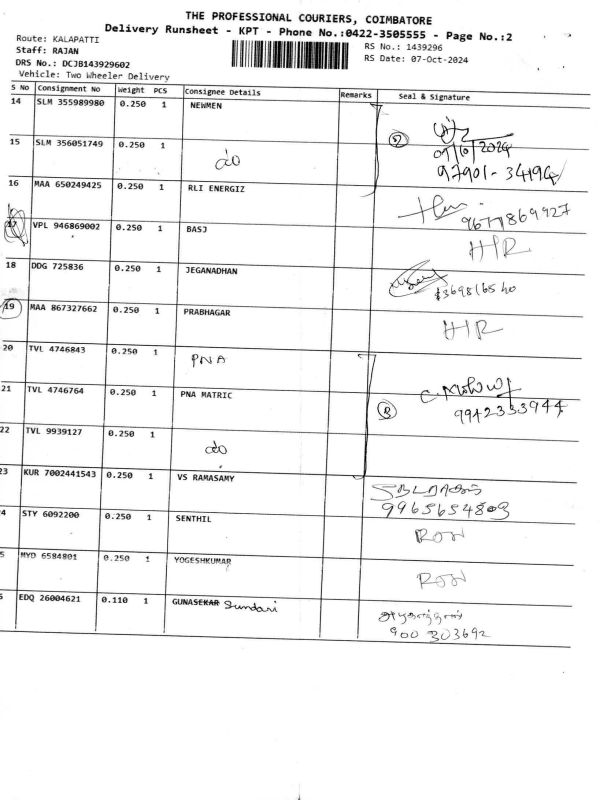 THE PROFESSIONAL COURIERS, COIMBATORE
Delivery Runsheet - KPT - Phone No.:0422-3505555 - Page No.:2
Route: KALAPATTI
Staff: RAJAN
DRS No.: DCJB143929602
Vehicle: Two Wheeler Delivery
RS No.: 1439296
RS Date: 07-Oct-2024
S No Consignment No Weight PCS Consignee Details Remarks Seal & Signature
14 SLM 355989980 0.250 1 NEWMEN
15 SLM 356051749 0.250 1 do 09/10/2024
97901-34194
16 MAA 650249425 0.250 1 RLI ENERGIZ 9677869927
17 VPL 946869002 0.250 1 BASJ HIR
18 DDG 725836 0.250 1 JEGANADHAN
19 MAA 867327662 0.250 1 PRABHAGAR HIR
20 TVL 4746843 0.250 1 PNA
21 TVL 4746764 0.250 1 PNA MATRIC 9942333944
22 TVL 9939127 0.250 1 do
23 KUR 7002441543 0.250 1 VS RAMASAMY
9965654803
4 STY 6092200 0.250 1 SENTHIL
5 MYD 6584801 0.250 1 YOGESHKUMAR
6 EDQ 26004621 0.110 1 GUNASEKAR Sundari
900 303692